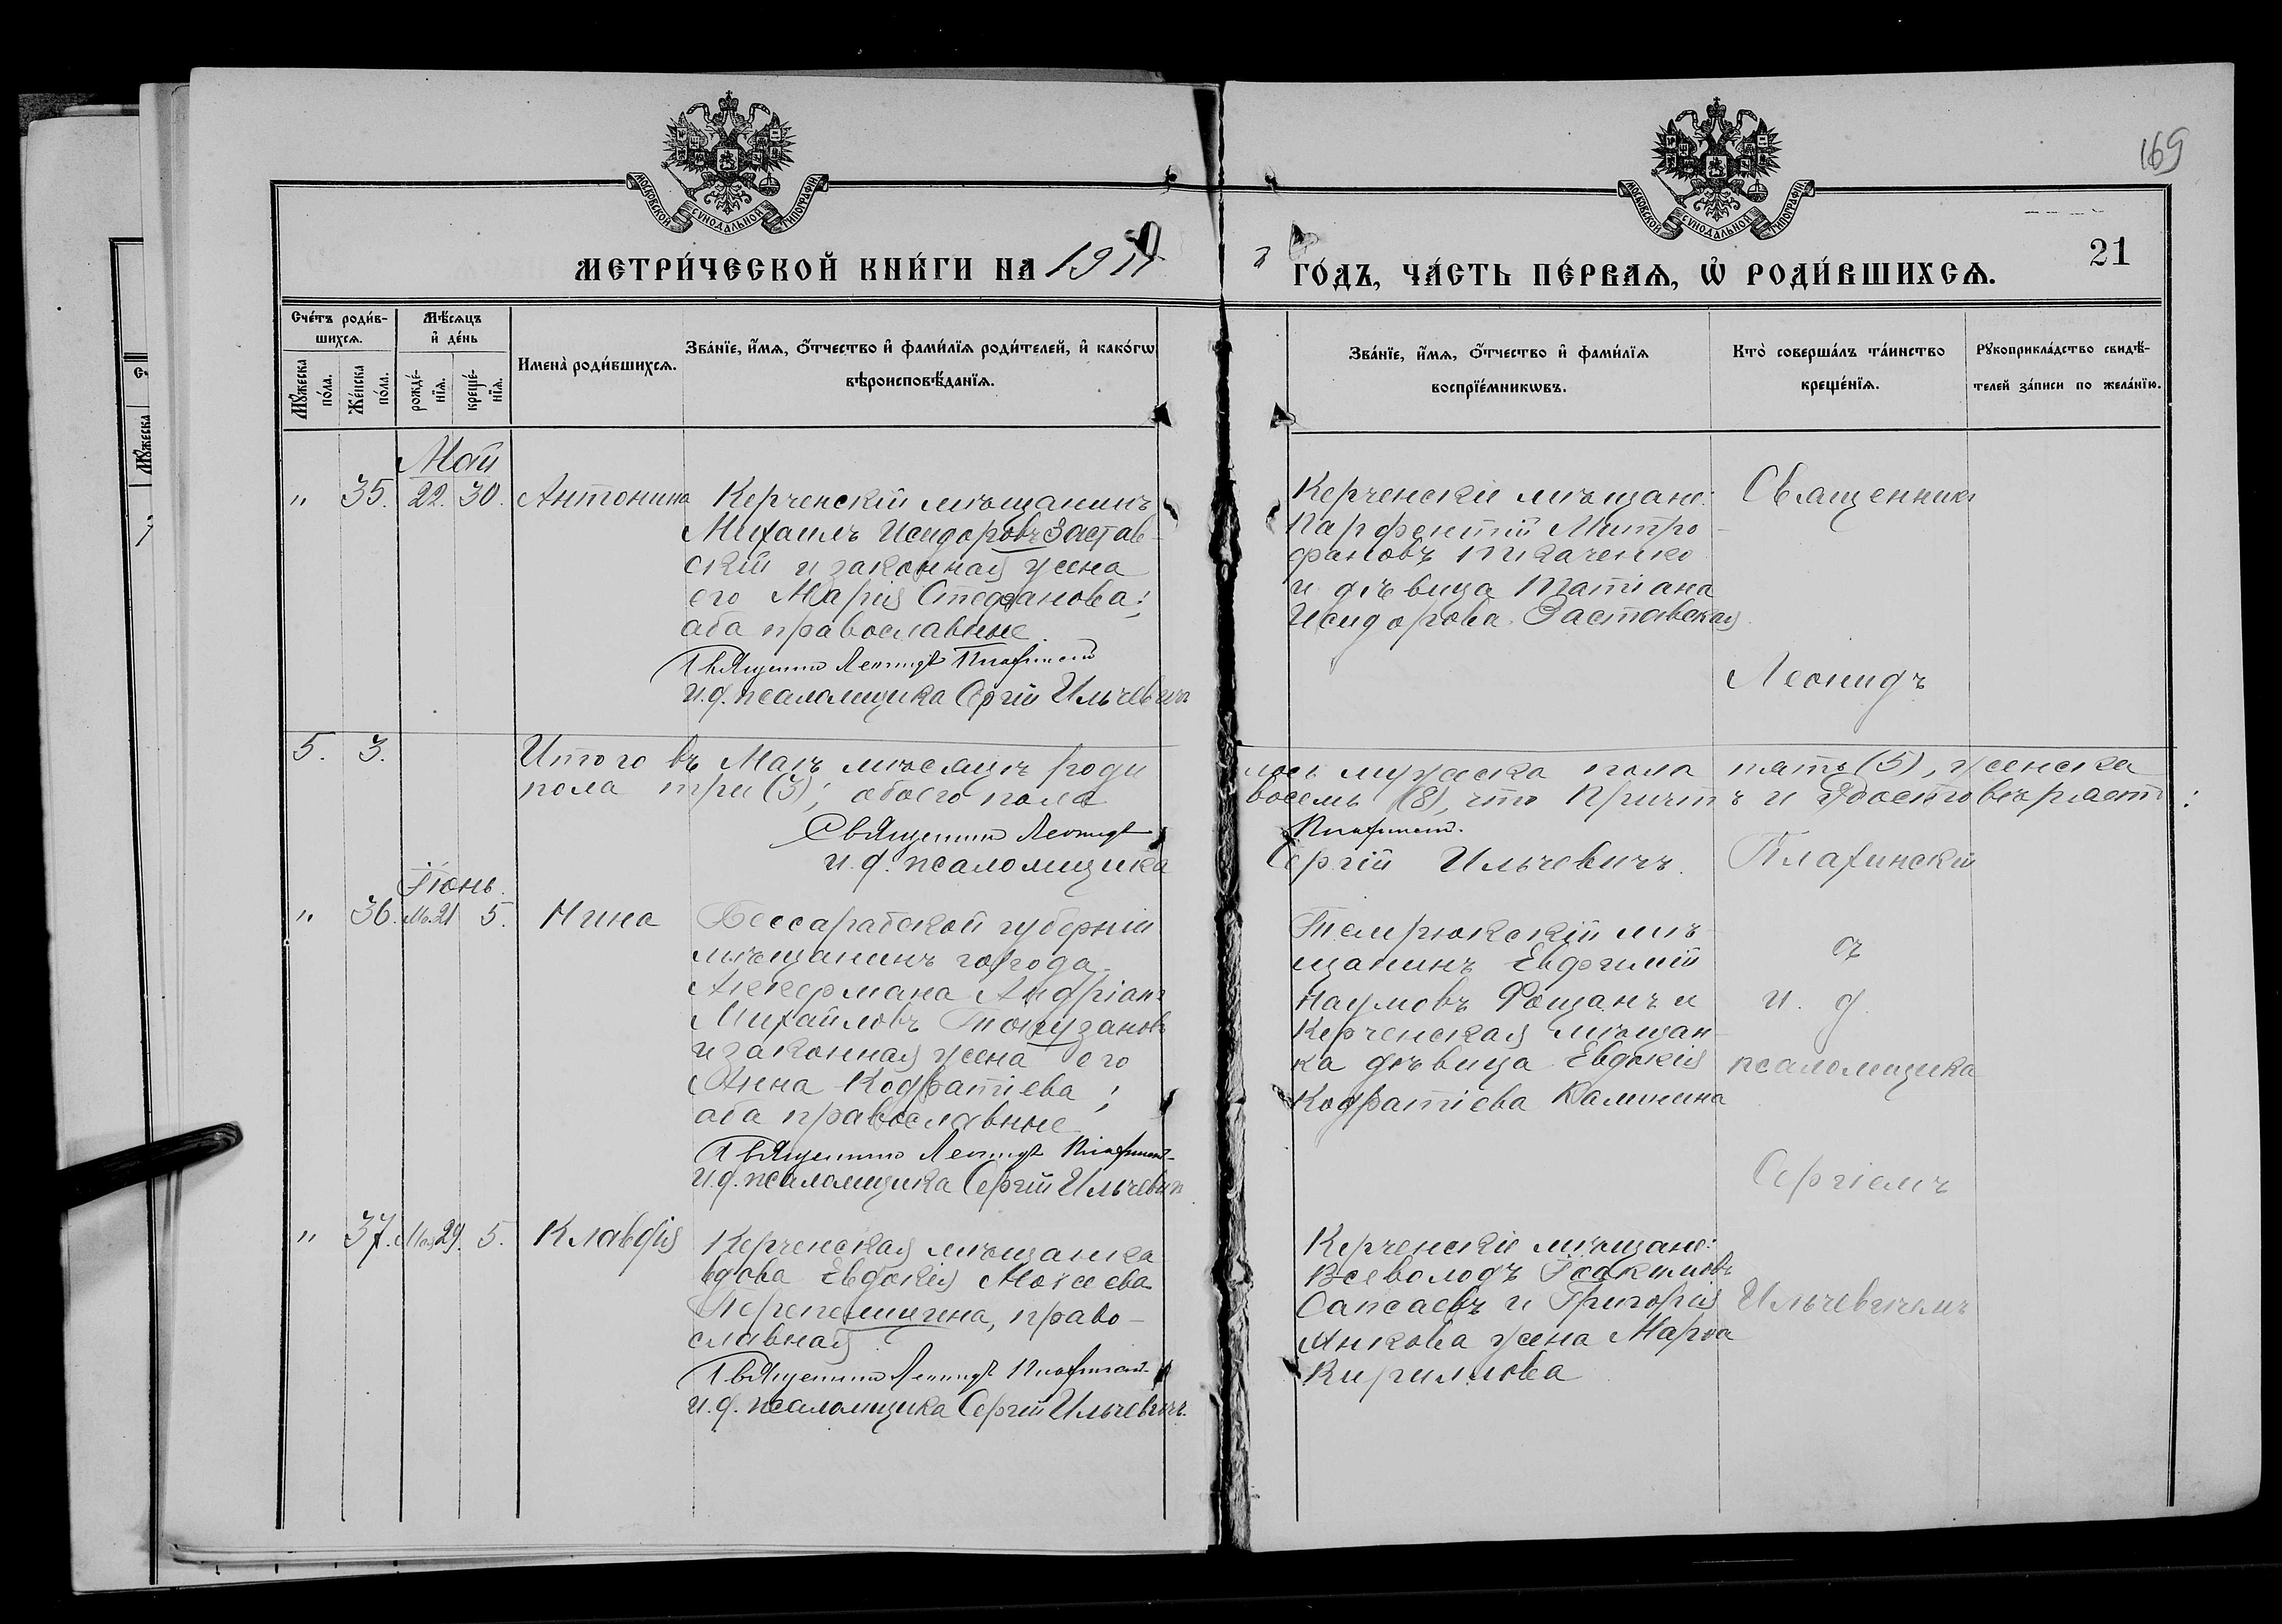 169
МОСКОВСКОЙ СУНОДАЛЬНОЙ ТИПОГРАФІИ
МОСКОВСКОЙ СУНОДАЛЬНОЙ ТИПОГРАФІИ
МЕТРИ́ЧЕСКОЙ КНИ́ГИ НА 1911
ГО́ДЪ, ЧА́СТЬ ПЕ́РВАѦ, Ѽ РОДИ́ВШИХСѦ.
21
Сче́тъ роди́в-
шихсѧ.
Мѣ́сѧцъ
и҆ де́нь
Мꙋ́жеска
по́ла.
Же́нска
по́ла.
рожде́-
нїѧ.
креще́-
нїѧ.
Имена̀ роди́вшихсѧ.
Зва́нїе, и҆́мѧ, ѻ҆́тчество и҆ фами́лїѧ роди́телей, и҆ како́гѡ
вѣроисповѣ́данїѧ.
Зва́нїе, и҆́мѧ, ѻ҆́тчество и҆ фами́лїѧ
воспрїе́мникѡвъ.
Кто̀ соверша́лъ та́инство
креще́нїѧ.
Рꙋкоприкла́дство свидѣ́-
телей за́писи по жела́нїю.
Май
" 35. 22. 30. Антонина
Керченскій мѣщанинъ
Михаилъ Исидоровъ Застав-
скій и законная жена
его Марія Стефанова;
оба православные
Священникъ Леонидъ Плахинскій
и. д. псаломщика Сергій Ильчевичъ
Керченскіе мѣщане:
Парфентій Митро-
фановъ Ткаченко
и дѣвица Татіана
Исидорова Заставская
Священникъ
Леонидъ
5. 3.
Итого въ Маѣ мѣсяцѣ роди
лось мужеска пола пять (5), женска
пола три (3); обоего пола
восемь (8), что Причтъ и удостовѣряетъ:
Священникъ Леонидъ
Плахинскій.
и. д. псаломщика
Сергій Ильчевичъ.
Плахинскій
Іюнь.
" 36. Ма. 21 5. Нина
Бессарабской губерніи
мѣщанинъ города
Аккермана Андріанъ
Михайловъ Токузановъ
и законная жена его
Анна Кодратіева;
оба православные
Священникъ Леонидъ Плахинскій
и. д. псаломщика Сергій Ильчевичъ
Темрюкскій мѣ-
щанинъ Евфимій
Наумовъ Фощанъ и
Керченская мѣщан-
ка дѣвица Евдокія
Кодратіева Калинина
съ
и. д.
псаломщика
Сергіемъ
" 37. Мая 29. 5. Клавдія
Керченская мѣщанка
вдова Евдокія Моисеева
Перепелицина, право-
славная
Священникъ Леонидъ Плахинскій
и. д. псаломщика Сергій Ильчевичъ.
Керченскіе мѣщане:
Всеволодъ Іоакимовъ
Сапсаевъ и Григорія
Анкова жена Марѳа
Кириллова
Ильчевичемъ